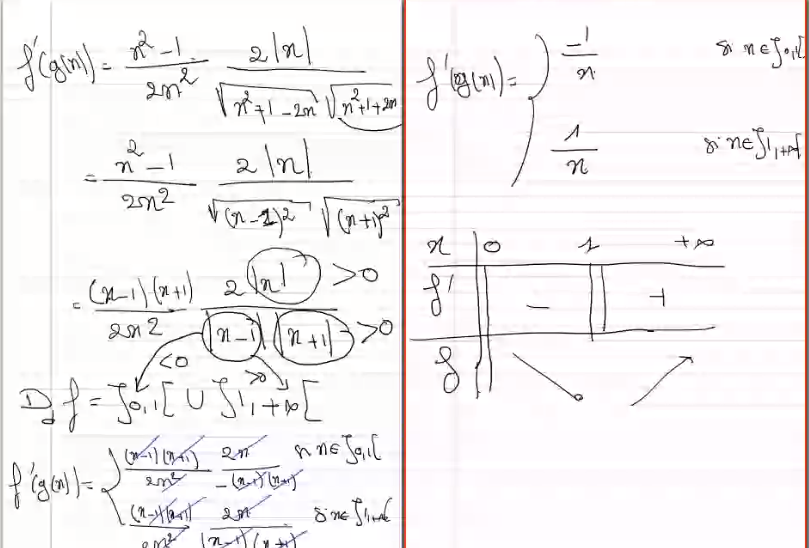 f'(g(x)) = x² - 1 / 2x² · 2|x| / √(x²+1-2x) √(x²+1+2x)
= x² - 1 / 2x² · 2|x| / √(x-1)² √(x+1)²
= (x-1)(x+1) / 2x² · 2|x| / |x-1| |x+1| >0 >0
<0 >0
D_f = ]0,1[ ∪ ]1,+∞[
f'(g(x)) = { (x-1)(x+1) / 2x² · 2x / -(x-1)(x+1) si x∈]0,1[
(x-1)(x+1) / 2x² · 2x / (x-1)(x+1) si x∈]1,+∞[
f'(g(x)) = } -1 / x si x∈]0,1[
1 / x si x∈]1,+∞[
x | 0 1 +∞
f' || - || +
f ||